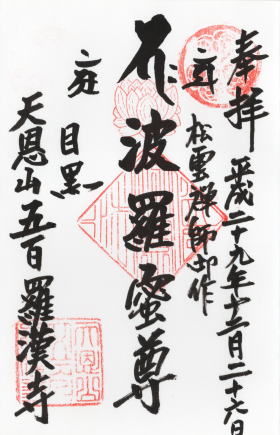 奉拝 平成二十九年十二月二十六日
松雲禅師御作
波羅蜜尊
目黒
天恩山五百羅漢寺